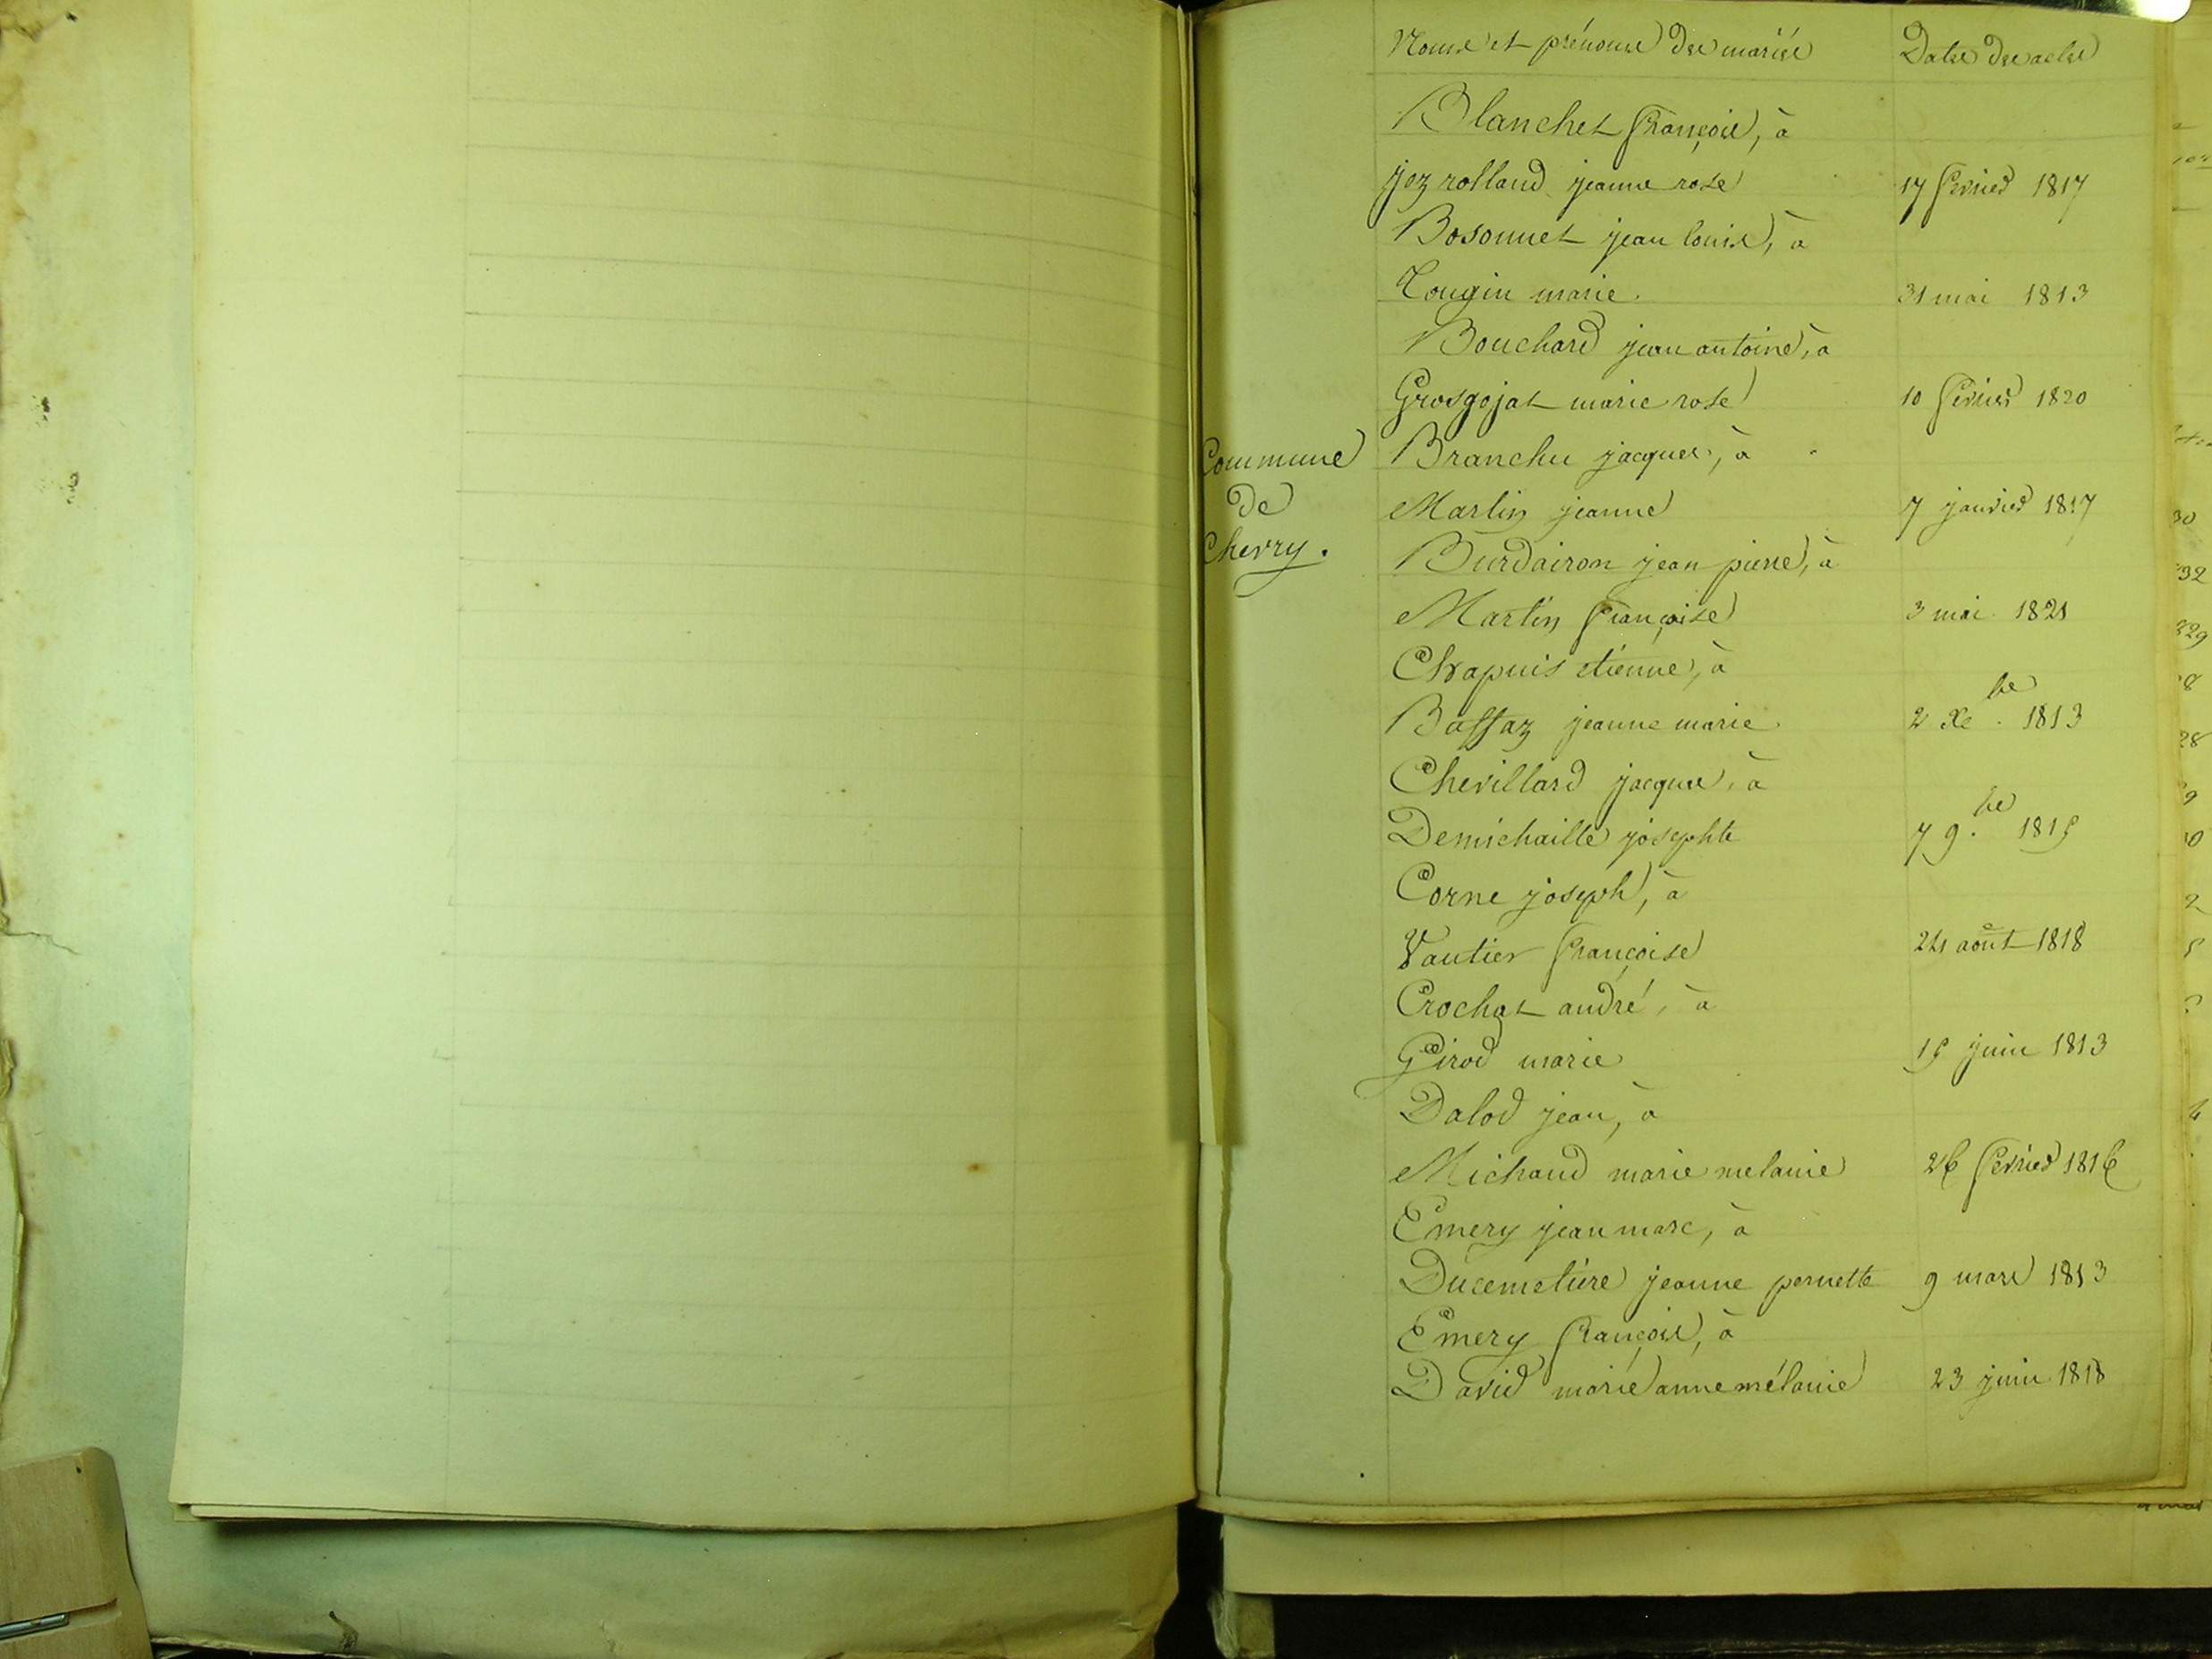 Noms et prénoms des mariés Dates des actes
Blanchet françois, à
jez rolland jeanne rose 17 fevrier 1817
Bosonnet jean louis, à
Tougin marie. 31 mai 1813
Bouchard jean antoine, à
Grosgojat marie rose 10 fevrier 1820
Commune
de
Chevry.
Branchu jacques, à
Martin jeanne 7 janvier 1817
Burdairon jean pierre, à
Martin françoise 3 mai 1821
Chapuis etienne, à
Bassaz jeanne marie 2 Xe.bre 1813
Chevillard jacques, à
Demichaille josephte 7 9.bre 1815
Corne joseph, à
Vautier françoise 24 août 1818
Crochat andré, à
Girod marie 15 juin 1813
Dalod jean, à
Michaud marie melanie 26 fevrier 1816
Emery jean marc, à
Ducemetière jeanne pernette 9 mars 1813
Emery françois, à
David marie anne mélanie 23 juin 1818